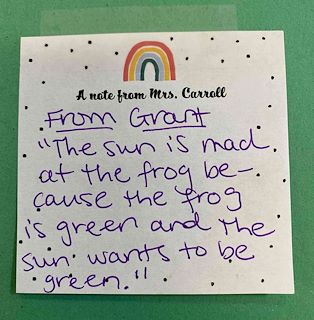 A note from Mrs. Carroll
From Grant
"The sun is mad
at the frog be-
cause the frog
is green and the
sun wants to be
green."